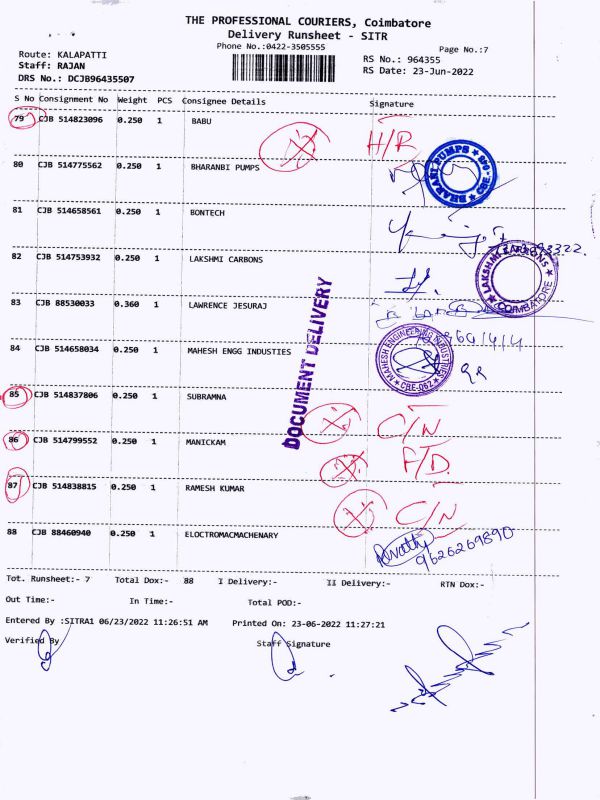 THE PROFESSIONAL COURIERS, Coimbatore
Delivery Runsheet - SITR
Phone No.:0422-3505555
Page No.:7
Route: KALAPATTI
RS No.: 964355
Staff: RAJAN
RS Date: 23-Jun-2022
DRS No.: DCJB96435507
S No Consignment No Weight PCS Consignee Details Signature
79 CJB 514823096 0.250 1 BABU H/R
80 CJB 514775562 0.250 1 BHARANBI PUMPS
BHARANI PUMPS
81 CJB 514658561 0.250 1 BONTECH
82 CJB 514753932 0.250 1 LAKSHMI CARBONS
LAKSHMI CARBONS COIMBATORE
83 CJB 88530033 0.360 1 LAWRENCE JESURAJ
84 CJB 514658034 0.250 1 MAHESH ENGG INDUSTIES
MAHESH ENGINEERING INDUSTRIES CBE-062
DOCUMENT DELIVERY
85 CJB 514837806 0.250 1 SUBRAMNA C/N
86 CJB 514799552 0.250 1 MANICKAM F/D
87 CJB 514838815 0.250 1 RAMESH KUMAR C/N
88 CJB 88460940 0.250 1 ELOCTROMACMACHENARY
9626269890
Tot. Runsheet:- 7 Total Dox:- 88 I Delivery:- II Delivery:- RTN Dox:-
Out Time:- In Time:- Total POD:-
Entered By :SITRA1 06/23/2022 11:26:51 AM Printed On: 23-06-2022 11:27:21
Verified By Staff Signature